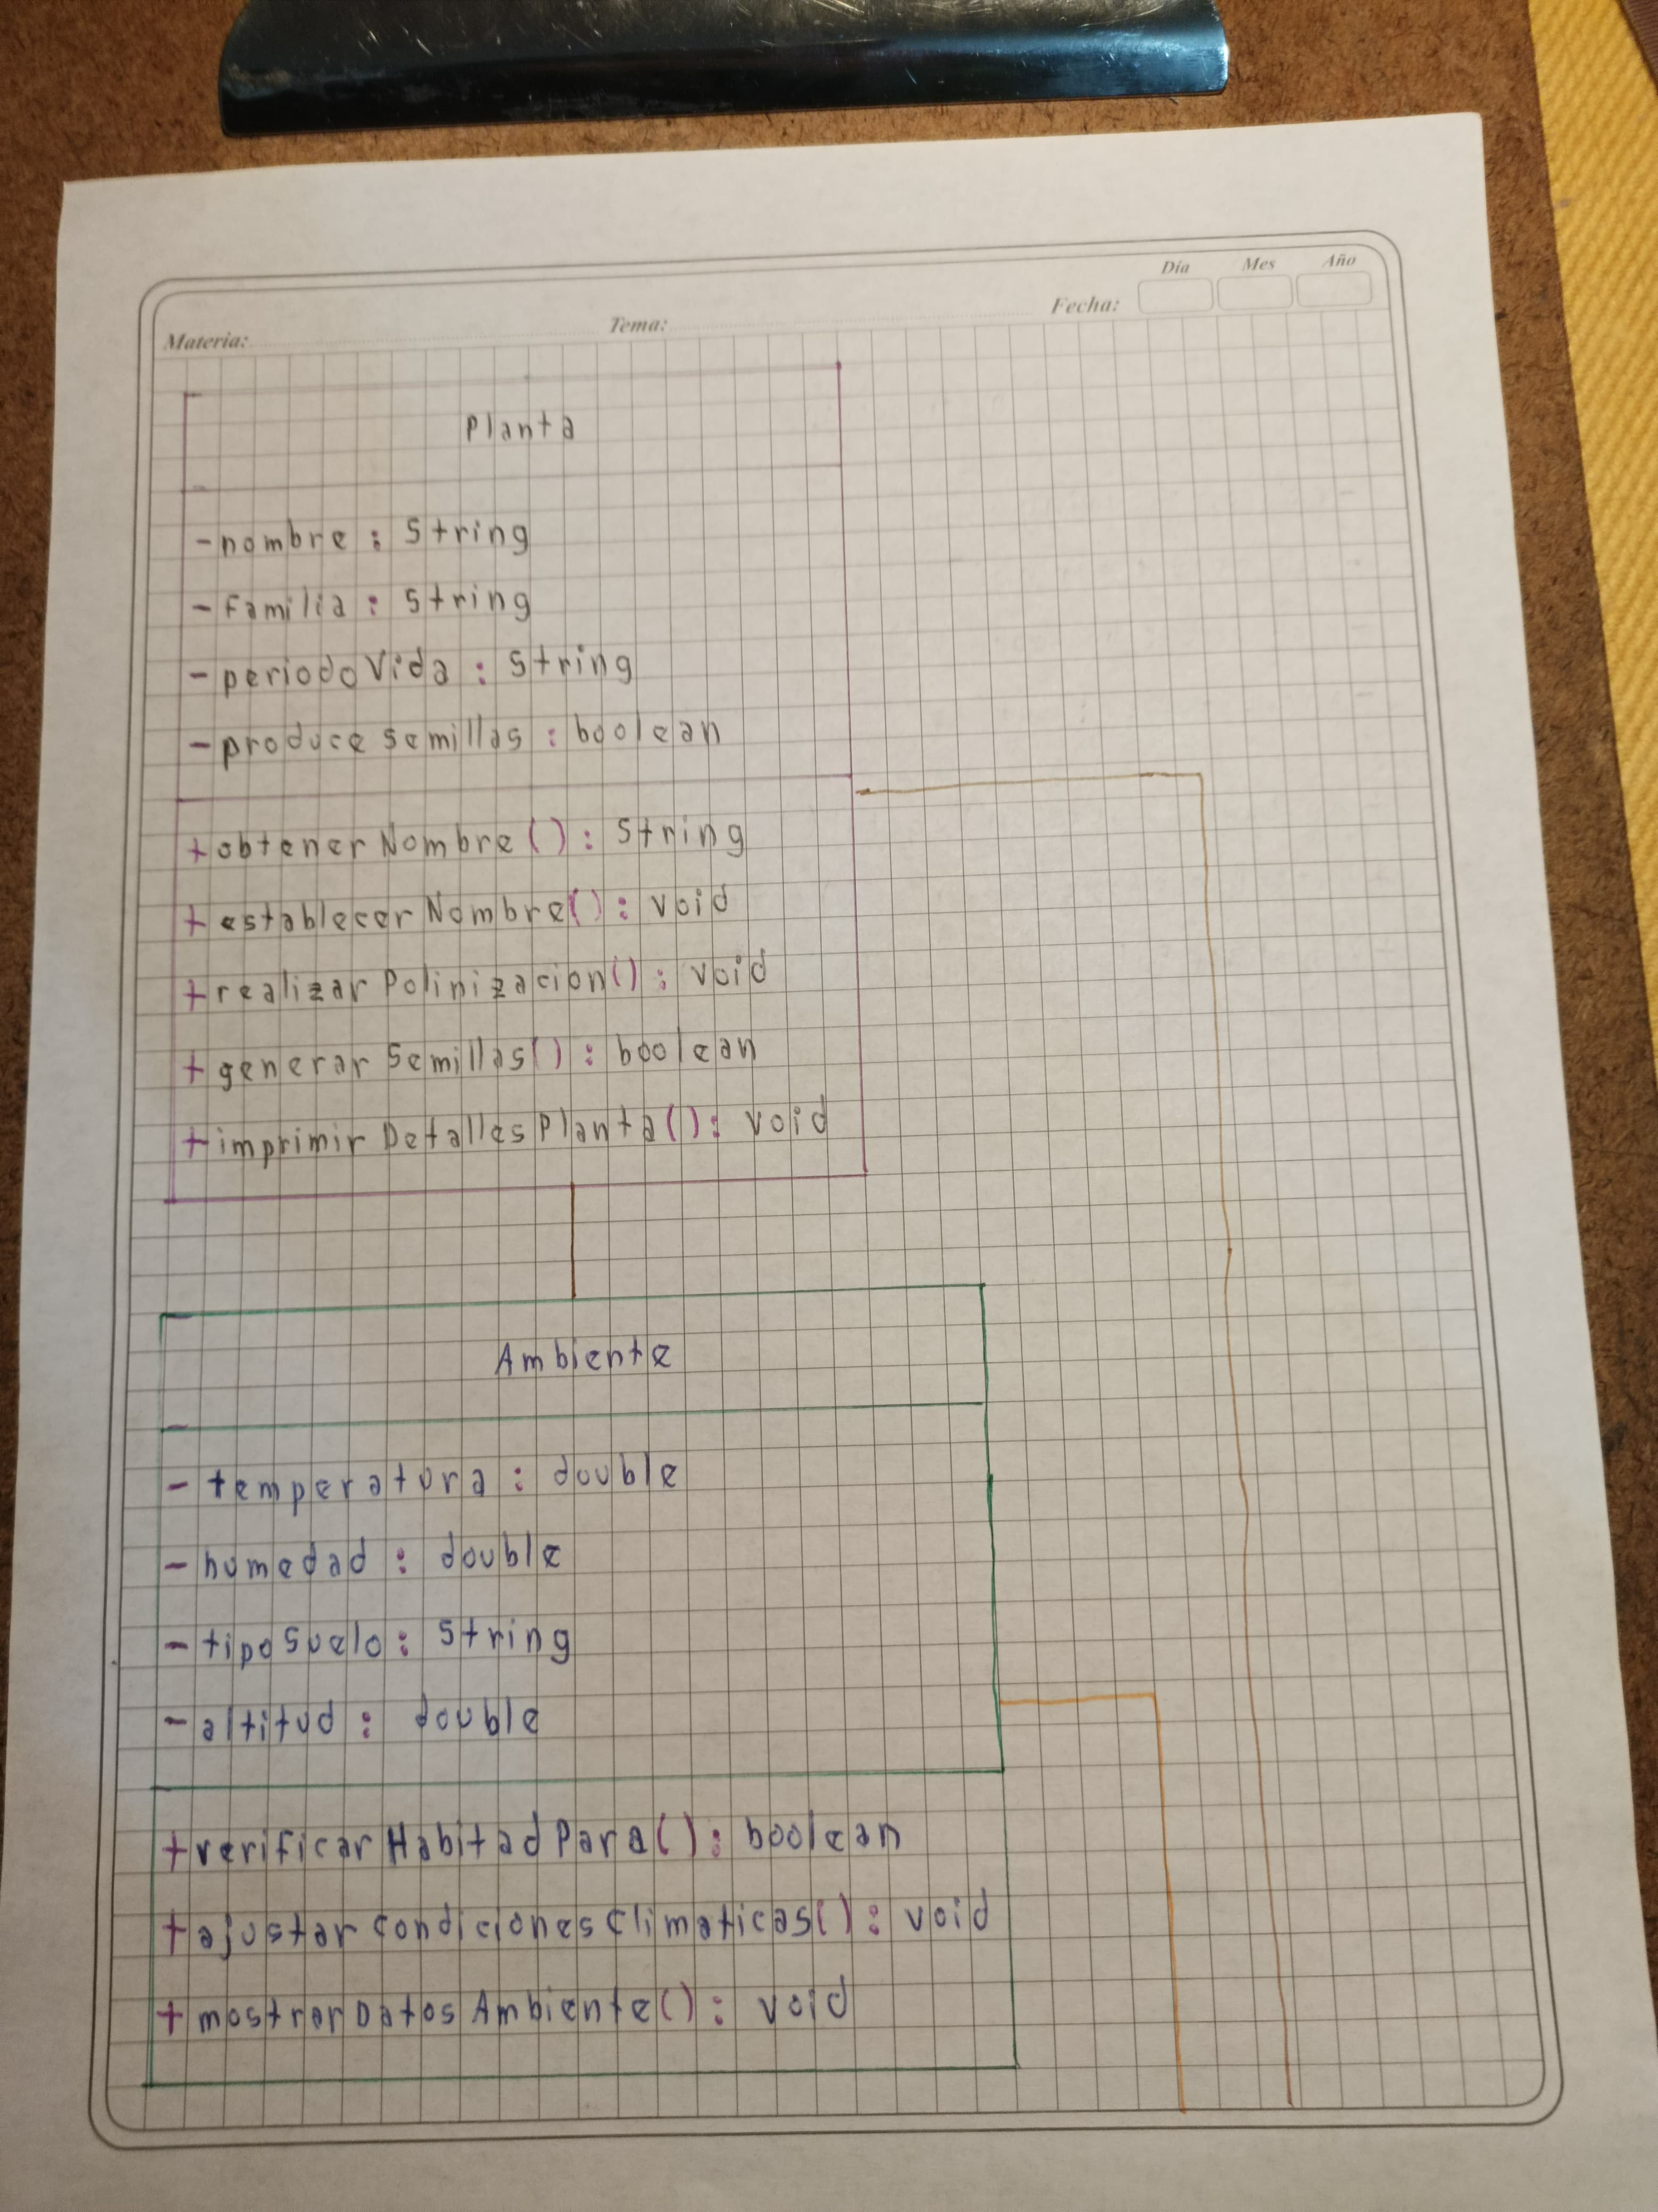 Día Mes Año
Materia: Tema: Fecha:
Planta
- nombre : String
- familia : String
- periodoVida : String
- produce semillas : boolean
+ obtenerNombre() : String
+ establecerNombre() : void
+ realizarPolinizacion() : void
+ generarSemillas() : boolean
+ imprimirDetallesPlanta() : void
Ambiente
- temperatura : double
- humedad : double
- tipoSuelo : String
- altitud : double
+ verificarHabitadPara() : boolean
+ ajustarcondicionesClimaticas() : void
+ mostrarDatosAmbiente() : void